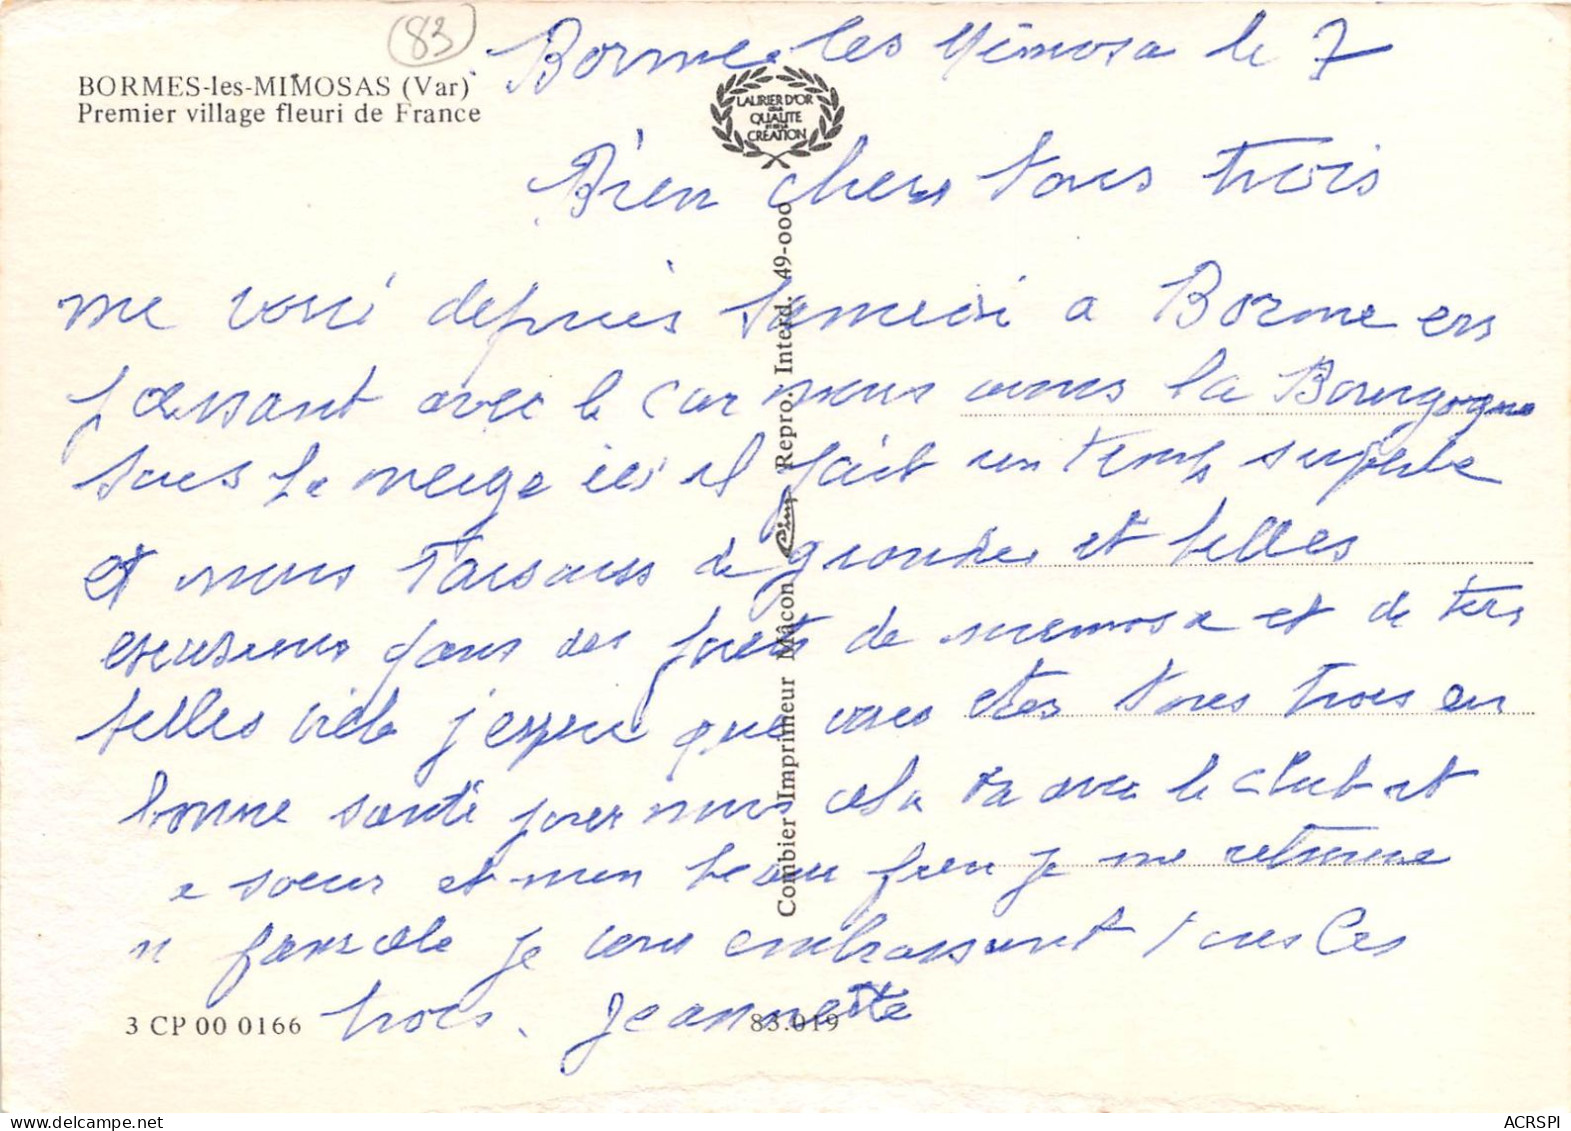 (83)
BORMES-les-MIMOSAS (Var)
Premier village fleuri de France
Borme les Mimosa le 7
LAURIER D'OR
DE LA
QUALITE
ET DE LA
CREATION
Bien chers tous trois
me voici depuis samedi a Borme en
passant avec le car nous avons la Bourgogne
sous la neige ici il fait un temps superbe
et nous faisons de grande et belles
excursions dans des forets de mimosa et de tres
belles j'espere que vous etes tous trois en
bonne santé pour nous cela va avec le club et
soeur et mon beau frere je me retrouve
n famille je vous embrassent tous les
trois. Jeannette
Combier Imprimeur Mâcon Cim Repro. Interd. 49-000
3 CP 00 0166
83.019
ACRSPI